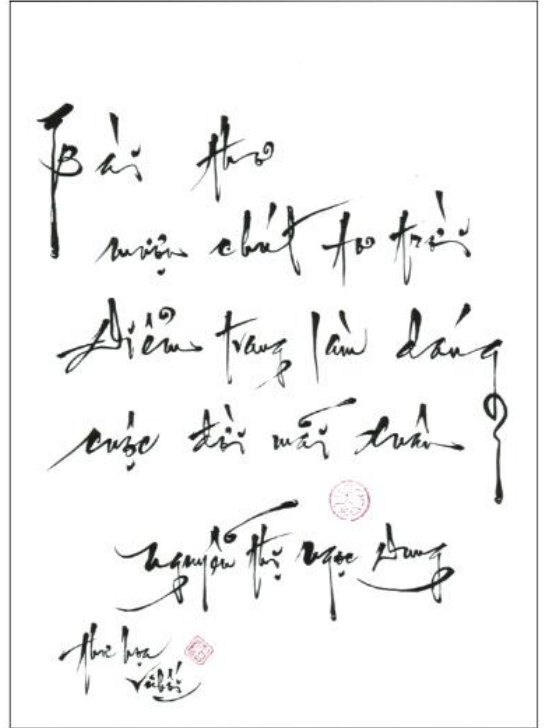 Bài thơ
mượn chút tơ trời
Điểm trang làm dáng
cuộc đời mãi xuân
Nguyễn Thị Ngọc Dung
thư họa
Vũ Hối